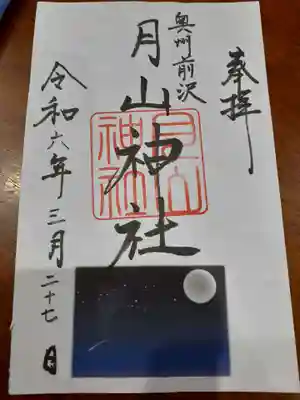 奉拝
奥州前沢
月山神社
令和六年三月二十七日